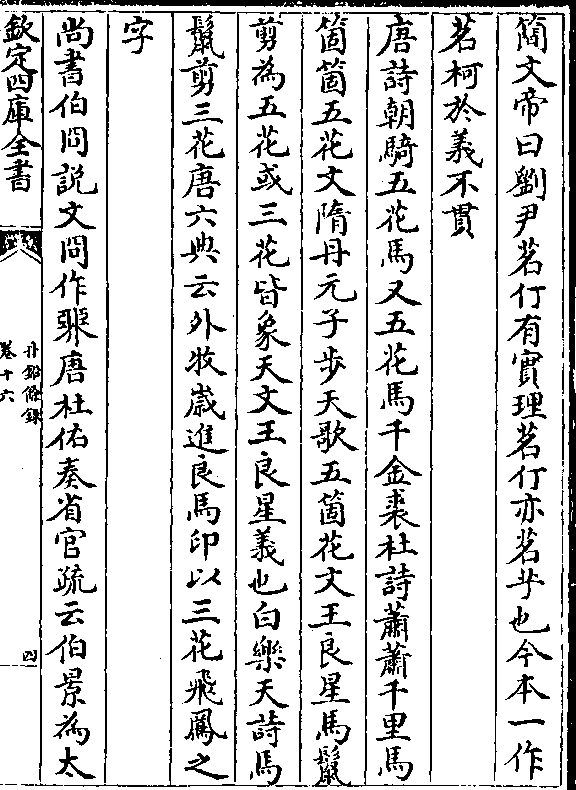 簡文帝曰劉尹茗仃有實理茗仃亦茗艼也今本一作
茗柯於義不貫
唐詩朝騎五花馬又五花馬千金裘杜詩蕭蕭千里馬
箇箇五花文隋丹元子步天歌五箇花文王良星馬鬣
剪為五花或三花皆象天文王良星義也白樂天詩馬
鬣剪三花唐六典云外牧嵗進良馬印以三花飛鳳之
字
尚書伯冏説文冏作𤾉唐杜佑奏省官疏云伯景為太
欽定四庫全書
丹鉛餘録
卷十六
四